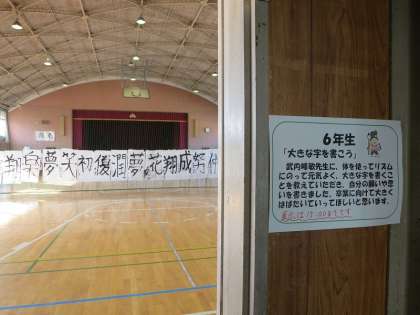 翔 夢 笑 初 優 潤 夢 花 翔 成 努
6年生
「大きな字を書こう」
武内峰敏先生に、体を使ってリズム
にのって元気よく、大きな字を書くこ
とを教えていただき、自分の願いや思
いを書きました。卒業に向けて大きく
はばたいていってほしいと思います。